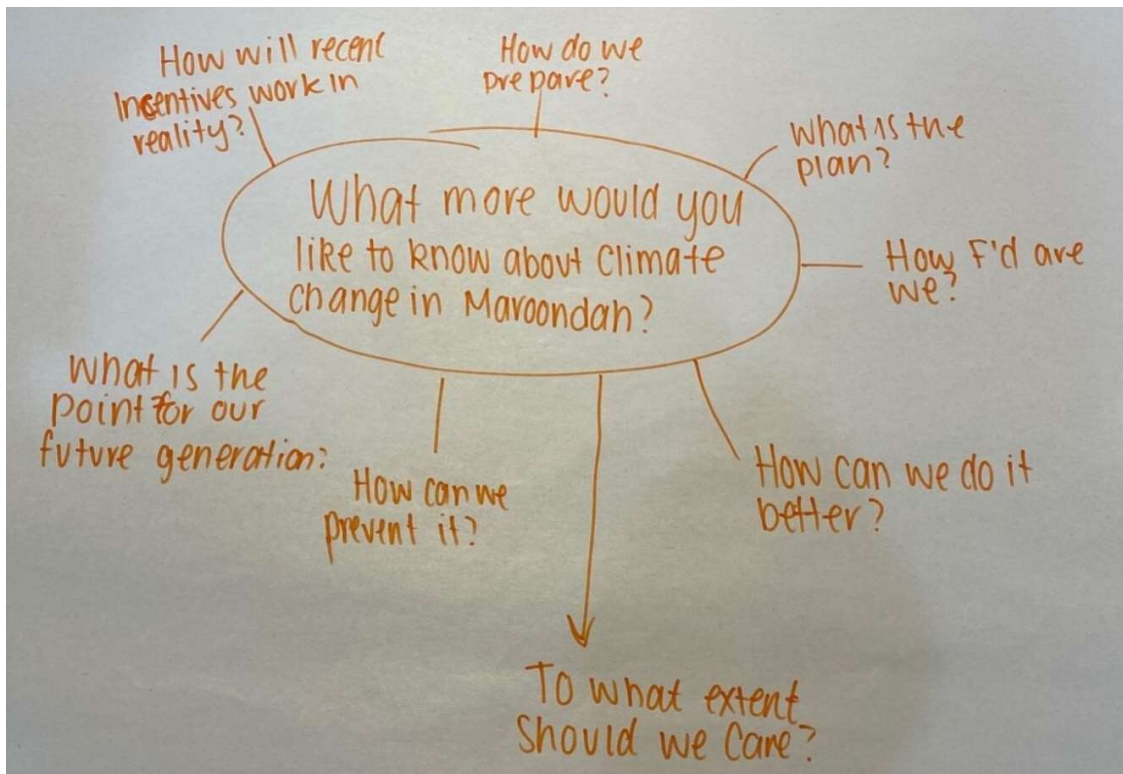 How will recent
Incentives work in
reality?
How do we
prepare?
What is the
plan?
What more would you
like to know about Climate
change in Maroondah?
How F'd are
we?
What is the
point for our
future generation?
How can we
prevent it?
How can we do it
better?
To what extent
Should we Care?